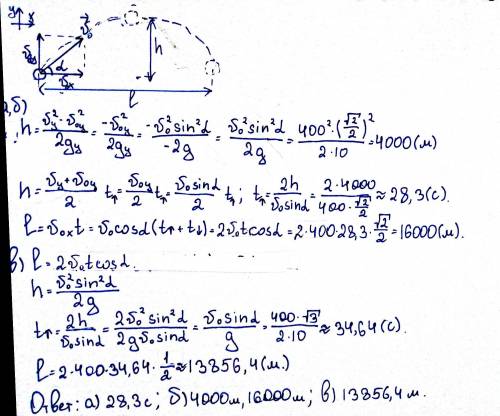 y x
v⃗₀
v₀y
α
v₀x
h
l
а,б)
h = (v²y - v²₀y)/(2gy) = (-v²₀y)/(2gy) = (-v₀² sin²α)/(-2g) = (v₀² sin²α)/(2g) = (400² · (√2/2)²)/(2·10) = 4000(м)
h = (vy + v₀y)/2 t↑ = v₀y/2 t↑ = (v₀ sinα)/2 t↑; t↑ = 2h/(v₀ sinα) = (2·4000)/(400 · √2/2) ≈ 28,3(с).
l = v₀x t = v₀ cosα (t↑ + t↓) = 2v₀t cosα = 2·400·28,3·√2/2 = 16000(м).
в) l = 2v₀t cosα.
h = (v₀² sin²α)/(2g)
t↑ = 2h/(v₀ sinα) = (2v₀² sin²α)/(2g v₀ sinα) = (v₀ sinα)/g = (400·√3)/(2·10) ≈ 34,64(с).
l = 2·400·34,64·1/2 ≈ 13856,4(м.)
Ответ: а) 28,3с; б) 4000м, 16000м; в) 13856,4м.